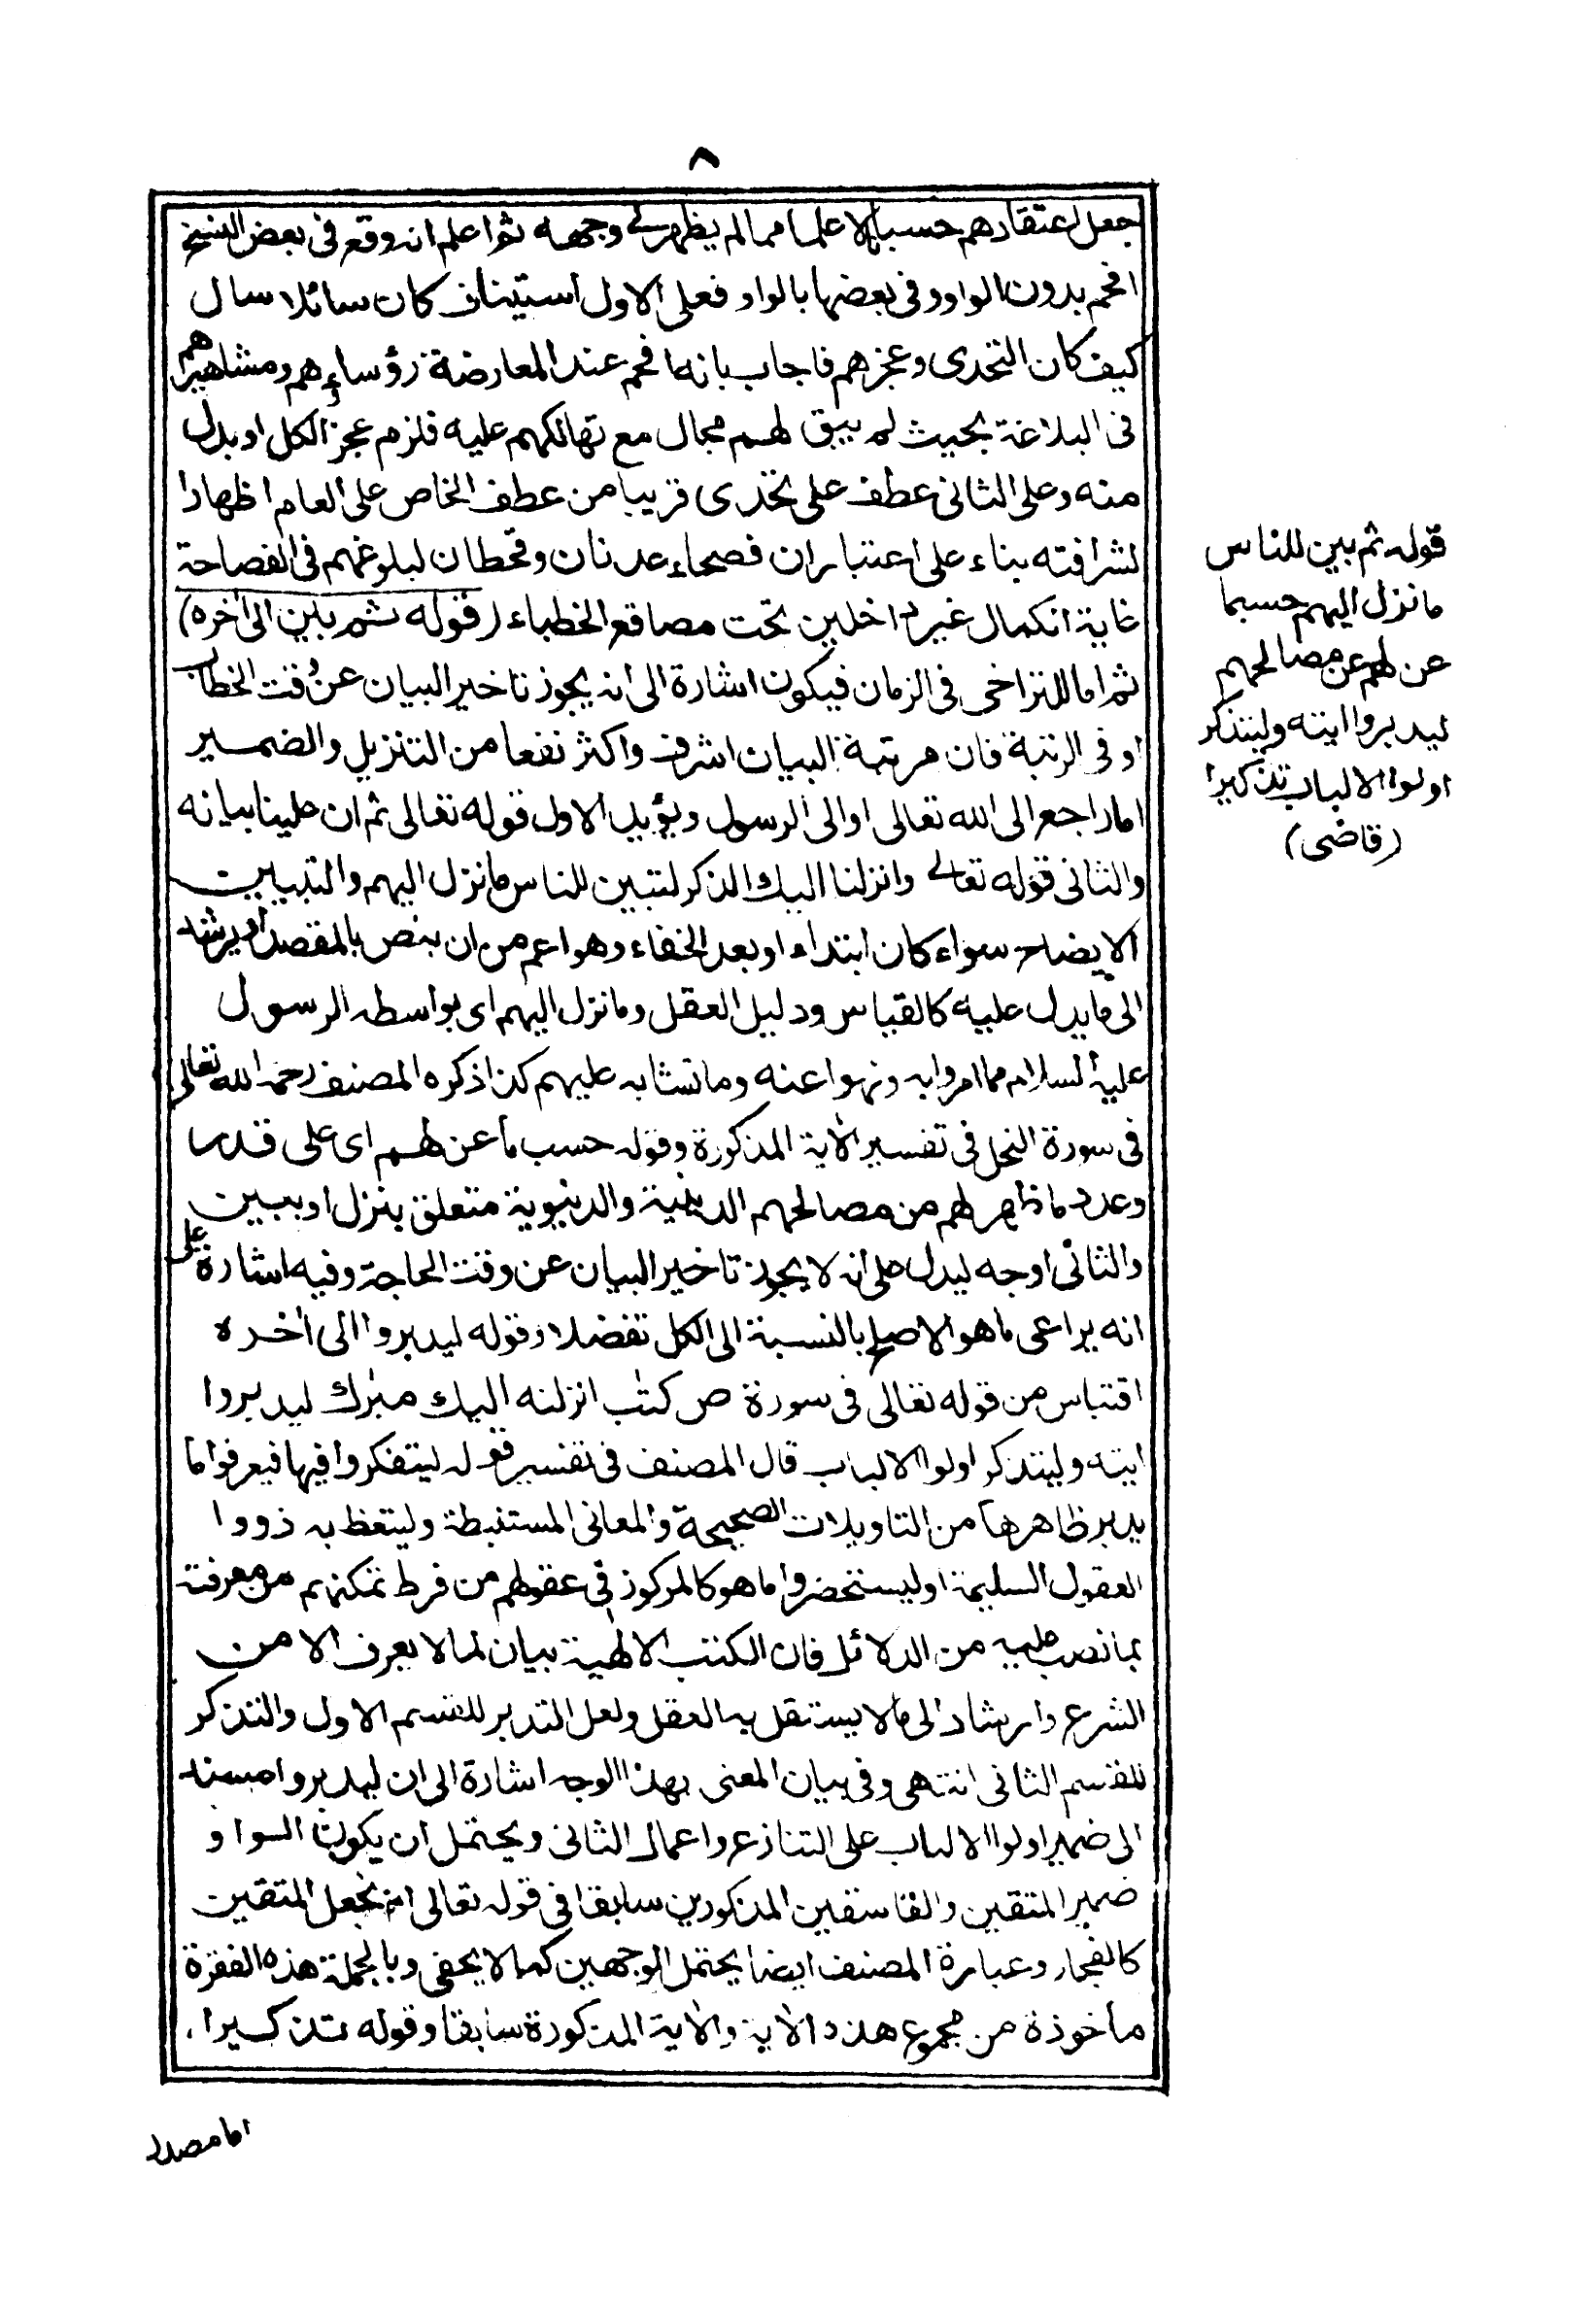 ٨
جعل اعتقادهم حسبانا لا علما مما لم يظهر لى وجهه ثم اعلم انه وقع فى بعض النسخ
افحم بدون الواو وفى بعضها بالواو فعلى الاول استيناف كان سائلا سال
كيف كان التحدى وعجزهم فاجاب بانه افحم عند المعارضة رؤساءهم ومشاهيرهم
فى البلاغة بحيث لم يبق لهم مجال مع تهالكهم عليه فلزم عجز الكل او بدل
منه وعلى الثانى عطف على تحدى قريبا من عطف الخاص على العام اظهارا
لشرافته بناء على اعتبار ان فصحاء عدنان وقحطان لبلوغهم فى الفصاحة
غاية الكمال غير داخلين تحت مصاقع الخطباء (قوله ثم بين الى اخره)
ثم اما للتراخى فى الزمان فيكون اشارة الى انه يجوز تاخير البيان عن وقت الخطاب
او فى الرتبة فان مرتبة البيان اشرف واكثر نفعا من التنزيل والضمير
اما راجع الى الله تعالى او الى الرسول ويؤيد الاول قوله تعالى ثم ان علينا بيانه
والثانى قوله تعالى وانزلنا اليك الذكر لتبين للناس ما نزل اليهم والتبيين
الايضاح سواء كان ابتداء او بعد الخفاء وهو اعم من ان ينص بالمقصد او يرشد
الى ما يدل عليه كالقياس ودليل العقل وما نزل اليهم اى بواسطه الرسول
عليه السلام مما امروا به ونهوا عنه وما تشابه عليهم كذا ذكره المصنف رحمه الله تعالى
فى سورة النحل فى تفسير الاية المذكورة وقوله حسب ما عن لهم اى على قدر
وعدد ما ظهر لهم من مصالحهم الدينية والدنيوية متعلق بنزل او ببين
والثانى اوجه ليدل على انه لا يجوز تاخير البيان عن وقت الحاجة وفيه اشارة على
انه يراعى ما هو الاصلح بالنسبة الى الكل تفضلا وقوله ليدبروا الى اخره
اقتباس من قوله تعالى فى سورة ص كتب انزلنه اليك مبرك ليدبروا
ايته وليتذكر اولوا الالباب قال المصنف فى تفسير قوله ليتفكروا فيها فيعرفوا ما
يدبر ظاهرها من التاويلات الصحيحة والمعانى المستنبطة وليتعظ به ذووا
العقول السليمة او ليستحضروا ما هو كالمركوز فى عقولهم من فرط تمكنهم من معرفته
بما نصب عليه من الدلائل فان الكتب الالهية بيان لما لا يعرف الا من
الشرع وارشاد الى ما لا يستقل به العقل ولعل التدبر للقسم الاول والتذكر
للقسم الثانى انتهى وفى بيان المعنى بهذا الوجه اشارة الى ان ليدبروا مسند
الى ضمير اولوا الالباب على التنازع واعمال الثانى ويحتمل ان يكون الواو
ضمير المتقين والفاسقين المذكورين سابقا فى قوله تعالى ام نجعل المتقين
كالفجار وعبارة المصنف ايضا يحتمل الوجهين كما لا يخفى وبالجملة هذه الفقرة
ماخوذة من مجموع هذه الاية والاية المذكورة سابقا وقوله تذكيرا
اما مصدر
قوله ثم بين للناس
ما نزل اليهم حسبما
عن لهم عن مصالحهم
ليدبروا ايته وليتذكر
اولوا الالباب تذكيرا
(قاضى)